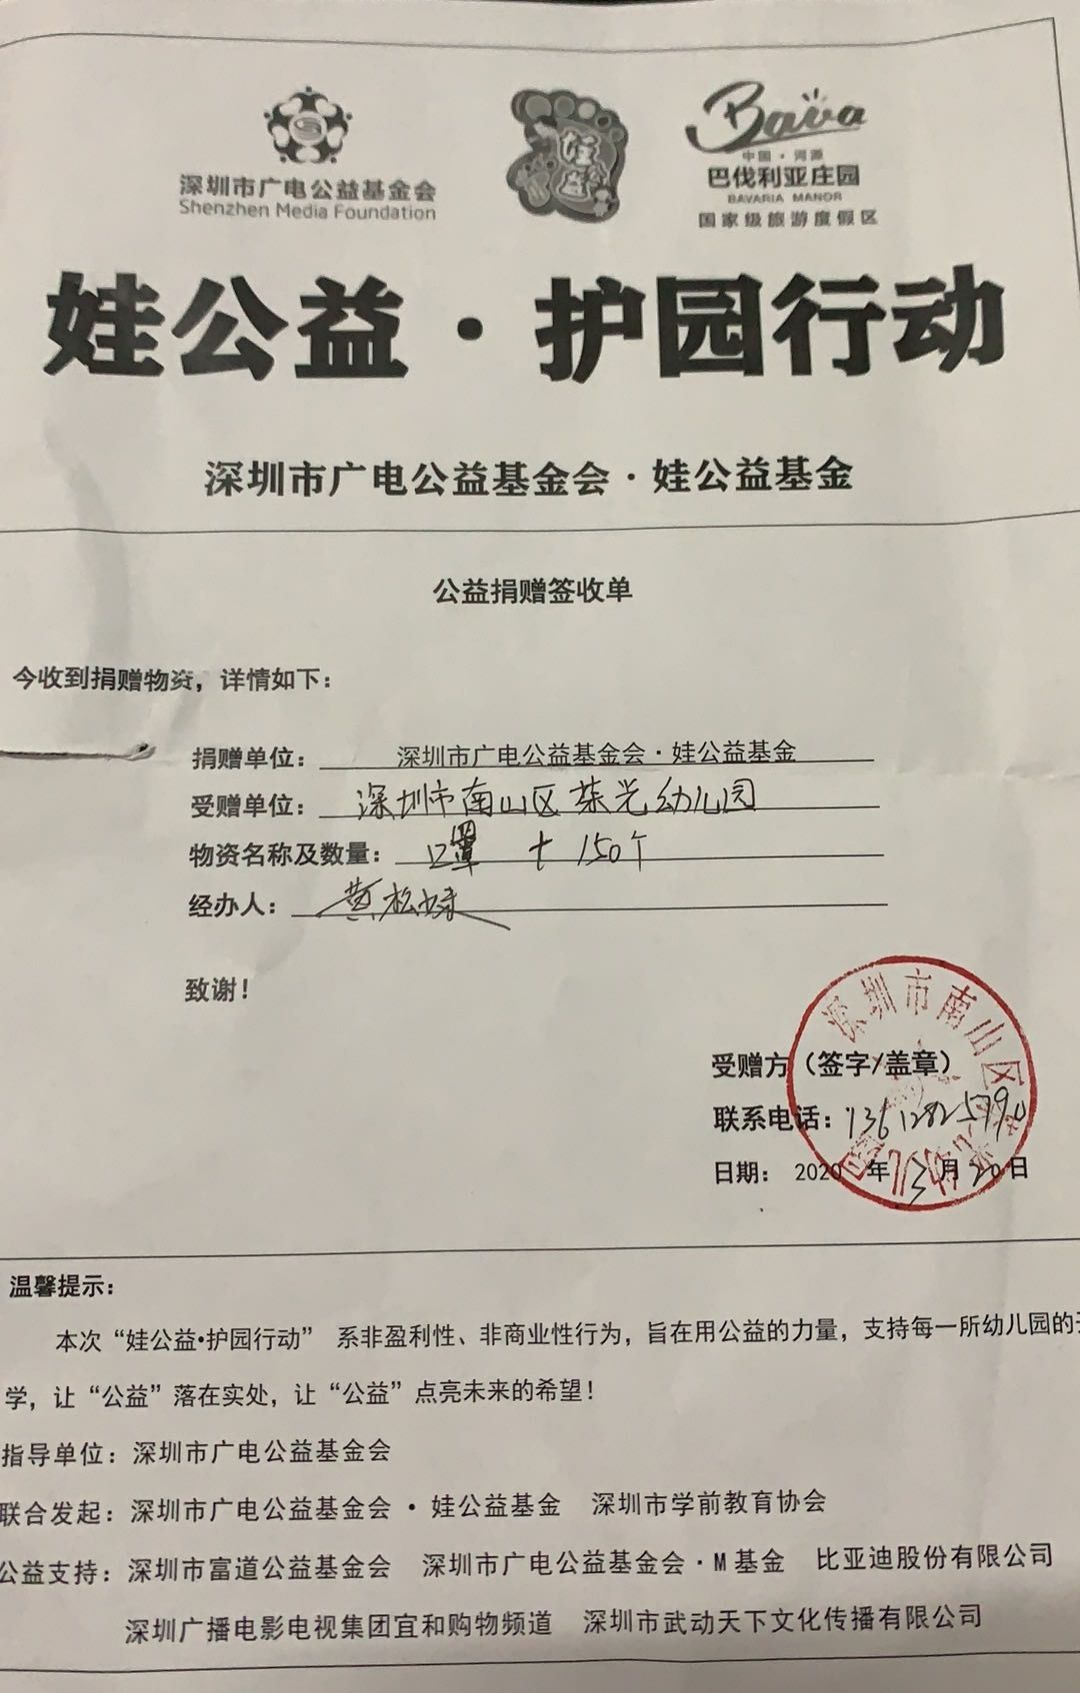 深圳市广电公益基金会
Shenzhen Media Foundation
娃公益
Bava
中国·河源
巴伐利亚庄园
BAVARIA MANOR
国家级旅游度假区
娃公益·护园行动
深圳市广电公益基金会·娃公益基金
公益捐赠签收单
今收到捐赠物资，详情如下：
捐赠单位： 深圳市广电公益基金会·娃公益基金
受赠单位： 深圳市南山区 光幼儿园
物资名称及数量： 口罩 150个
经办人： 黄松
致谢！
受赠方（签字/盖章）
联系电话：
日期： 2020 年 3 月 20 日
深圳市南山区 光幼儿园
温馨提示：
本次“娃公益•护园行动” 系非盈利性、非商业性行为，旨在用公益的力量，支持每一所幼儿园的
学，让“公益”落在实处，让“公益”点亮未来的希望！
指导单位：深圳市广电公益基金会
联合发起：深圳市广电公益基金会·娃公益基金 深圳市学前教育协会
公益支持：深圳市富道公益基金会 深圳市广电公益基金会·M基金 比亚迪股份有限公司
深圳广播电影电视集团宜和购物频道 深圳市武动天下文化传播有限公司